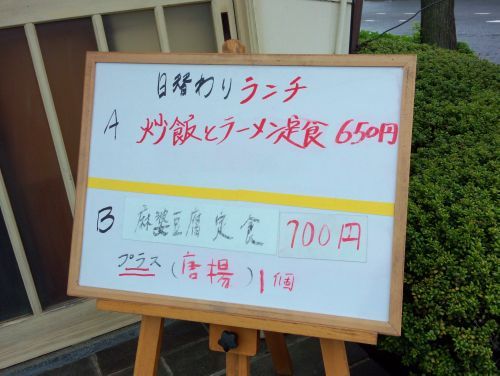 日替わりランチ
A 炒飯とラーメン定食 650円
B 麻婆豆腐定食 700円
プラス(唐揚)1個